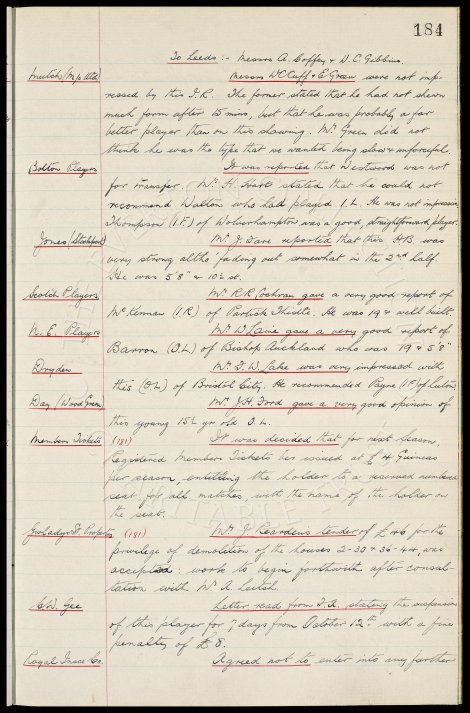 184
To Leeds :- Messrs A. Coffey & D. C. Gibbins.
Mutch (Mp. Utd) Messrs W C Cuff & E Green were not imp-
ressed by this I.R. The former stated that he had not shewn
much form after 15 mins, but that he was probably a far
better player than on this showing. Mr Green did not
think he was the type that we wanted being slow & unforceful.
Bolton Players It was reported that Westwood was not
for transfer. Mr H. Hart stated that he could not
recommend Walton who had played I.L. He was not impressive.
Thompson (I.F) of Wolverhampton was a good, straightforward player.
Jones (Stockport) Mr J. Fare reported that this H.B. was
very strong altho' fading out somewhat in the 2nd half.
He was 5'8" & 10½ st.
Scotch Players Mr R.R. Cochran gave a very good report of
McKennan (I.R) of Partick Thistle. He was 19 & well built.
N. E. Players Mr D. Lavie gave a very good report of
Barron (O.L) of Bishop Auckland who was 19 & 5'8"
Dryden Mr F. W. Lake was very impressed with
this (O.L) of Bristol City. He recommended Payne (I.F) of Luton
Day (Wood Green) Mr J.H. Ford gave a very good opinion of
this young 15½ yr old O.L.
Members Tickets (181) It was decided that for next season,
Registered Members Tickets be issued at £4 Guineas
per season, entitling the holder to a reserved numbered
seat for all matches with the name of the holder on
the seat.
Gwladys St. Properties (181) Mr J. Reardens tender of £46 for the
privilege of demolition of the houses 2-30 & 36-44, was
accepted: work to begin forthwith after consul-
tation with Mr A. Leitch.
C.W. Gee Letter read from F.A. stating the suspension
of this player for 7 days from October 12th with a fine
penalty of £8.
Royal Insce Co. Agreed not to enter into any further